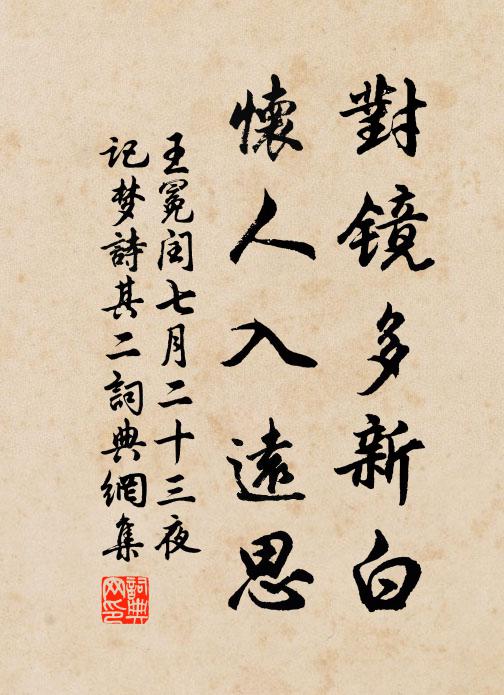 對镜多新白
懷人入遠思
王冕闰七月二十三夜
记梦詩其二詞典網集
詞典
网印